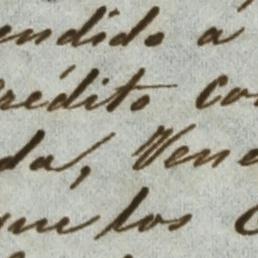 endido á
crédito con
da, Vene
que los C